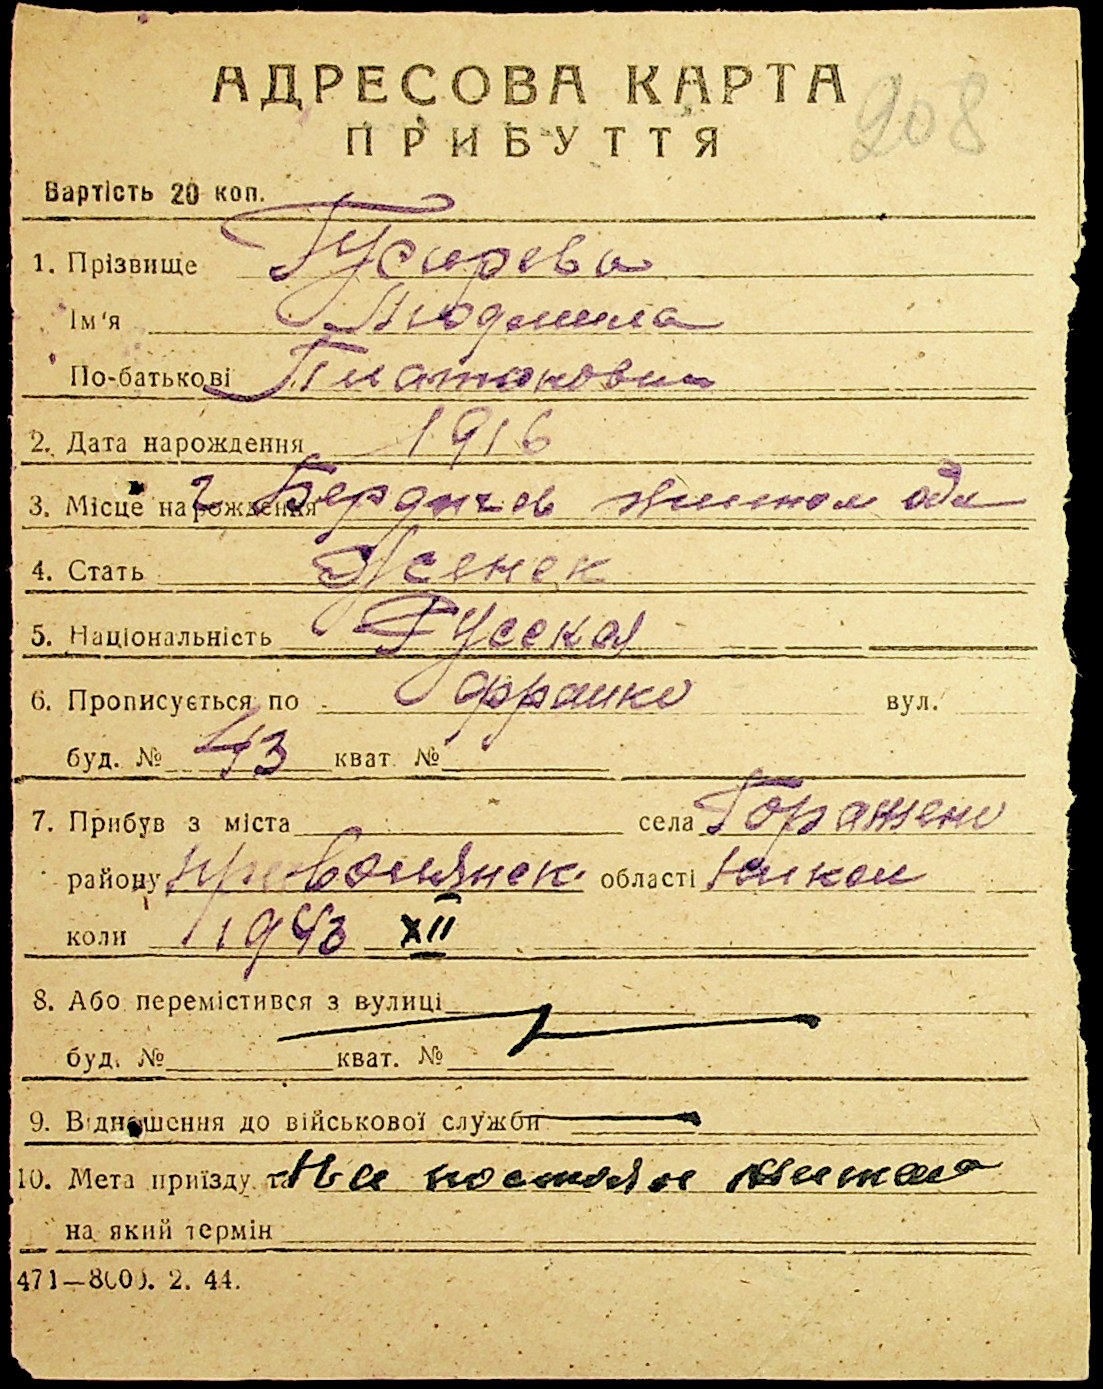 АДРЕСОВА КАРТА
208
ПРИБУТТЯ
Вартість 20 коп.
1. Прізвище Гусарева
Ім'я Людмила
По-батькові Платоновна
2. Дата народження 1916
3. Місце народження г Бердичев Житом обл
4. Стать Женск
5. Національність Русская
6. Прописується по Франко вул.
буд. № 43 кват. №
7. Прибув з міста села Горажено
району області Никол
коли 1943 XII
8. Або перемістився з вулиці
буд. № кват. №
9. Відношення до військової служби
10. Мета приїзду та На постоян
на який термін
471—8000. 2. 44.